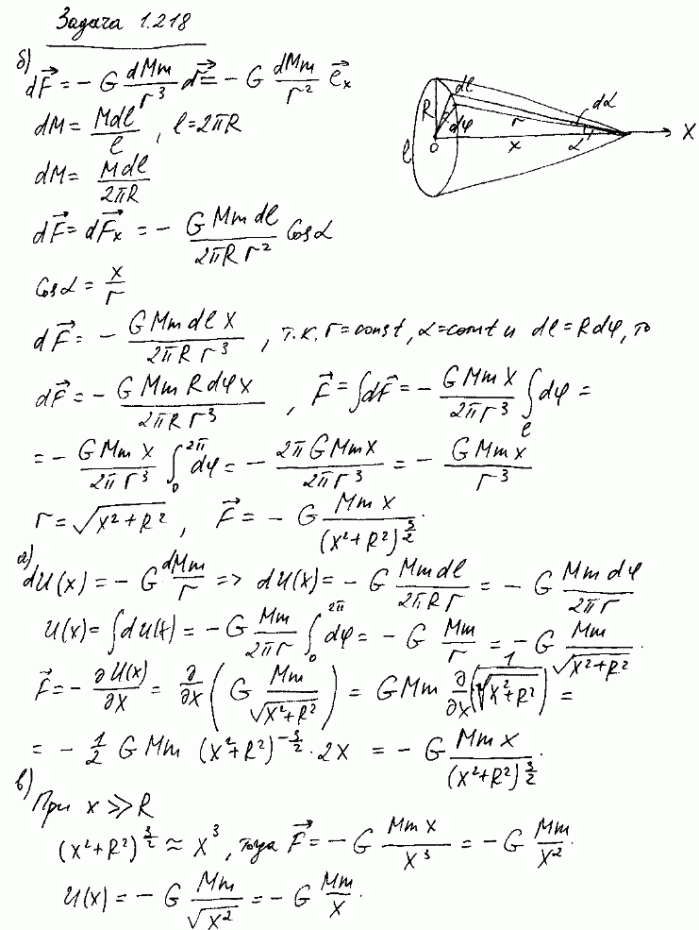 Задача 1.218
б)
dF⃗ = − G dMm/r³ dr⃗ = − G dMm/r² e⃗ₓ
dM = Mdl/l , l = 2πR
dM = Mdl/2πR
dF⃗ = dF⃗ₓ = − G Mm dl/2πR r² Cosα
Cosα = x/r
dF⃗ = − G Mm dl x/2πR r³ , т.к. r = const, α = const и dl = Rdφ, то
dF⃗ = − G Mm R dφ x/2πR r³ , F⃗ = ∫dF⃗ = − G Mm x/2π r³ ∫_l dφ =
= − G Mm x/2π r³ ∫₀^2π dφ = − 2π G Mm x/2π r³ = − G Mm x/r³
r = √(x² + R²) , F⃗ = − G Mm x/(x² + R²)^(3/2) .
а)
dU(x) = − G dMm/r => dU(x) = − G Mm dl/2πR r = − G Mm dφ/2π r
U(x) = ∫dU(x) = − G Mm/2π r ∫₀^2π dφ = − G Mm/r = − G Mm/√(x² + R²) .
F⃗ = − ∂U(x)/∂x = ∂/∂x (G Mm/√(x² + R²)) = G Mm ∂/∂x (1/√(x² + R²)) =
= − 1/2 G Mm (x² + R²)^(−3/2) · 2x = − G Mm x/(x² + R²)^(3/2) .
в)
При x ≫ R
(x² + R²)^(3/2) ≈ x³ , тогда F⃗ = − G Mm x/x³ = − G Mm/x² .
U(x) = − G Mm/√x² = − G Mm/x .
R
dl
dφ
r
dα
α
l
0
x
X